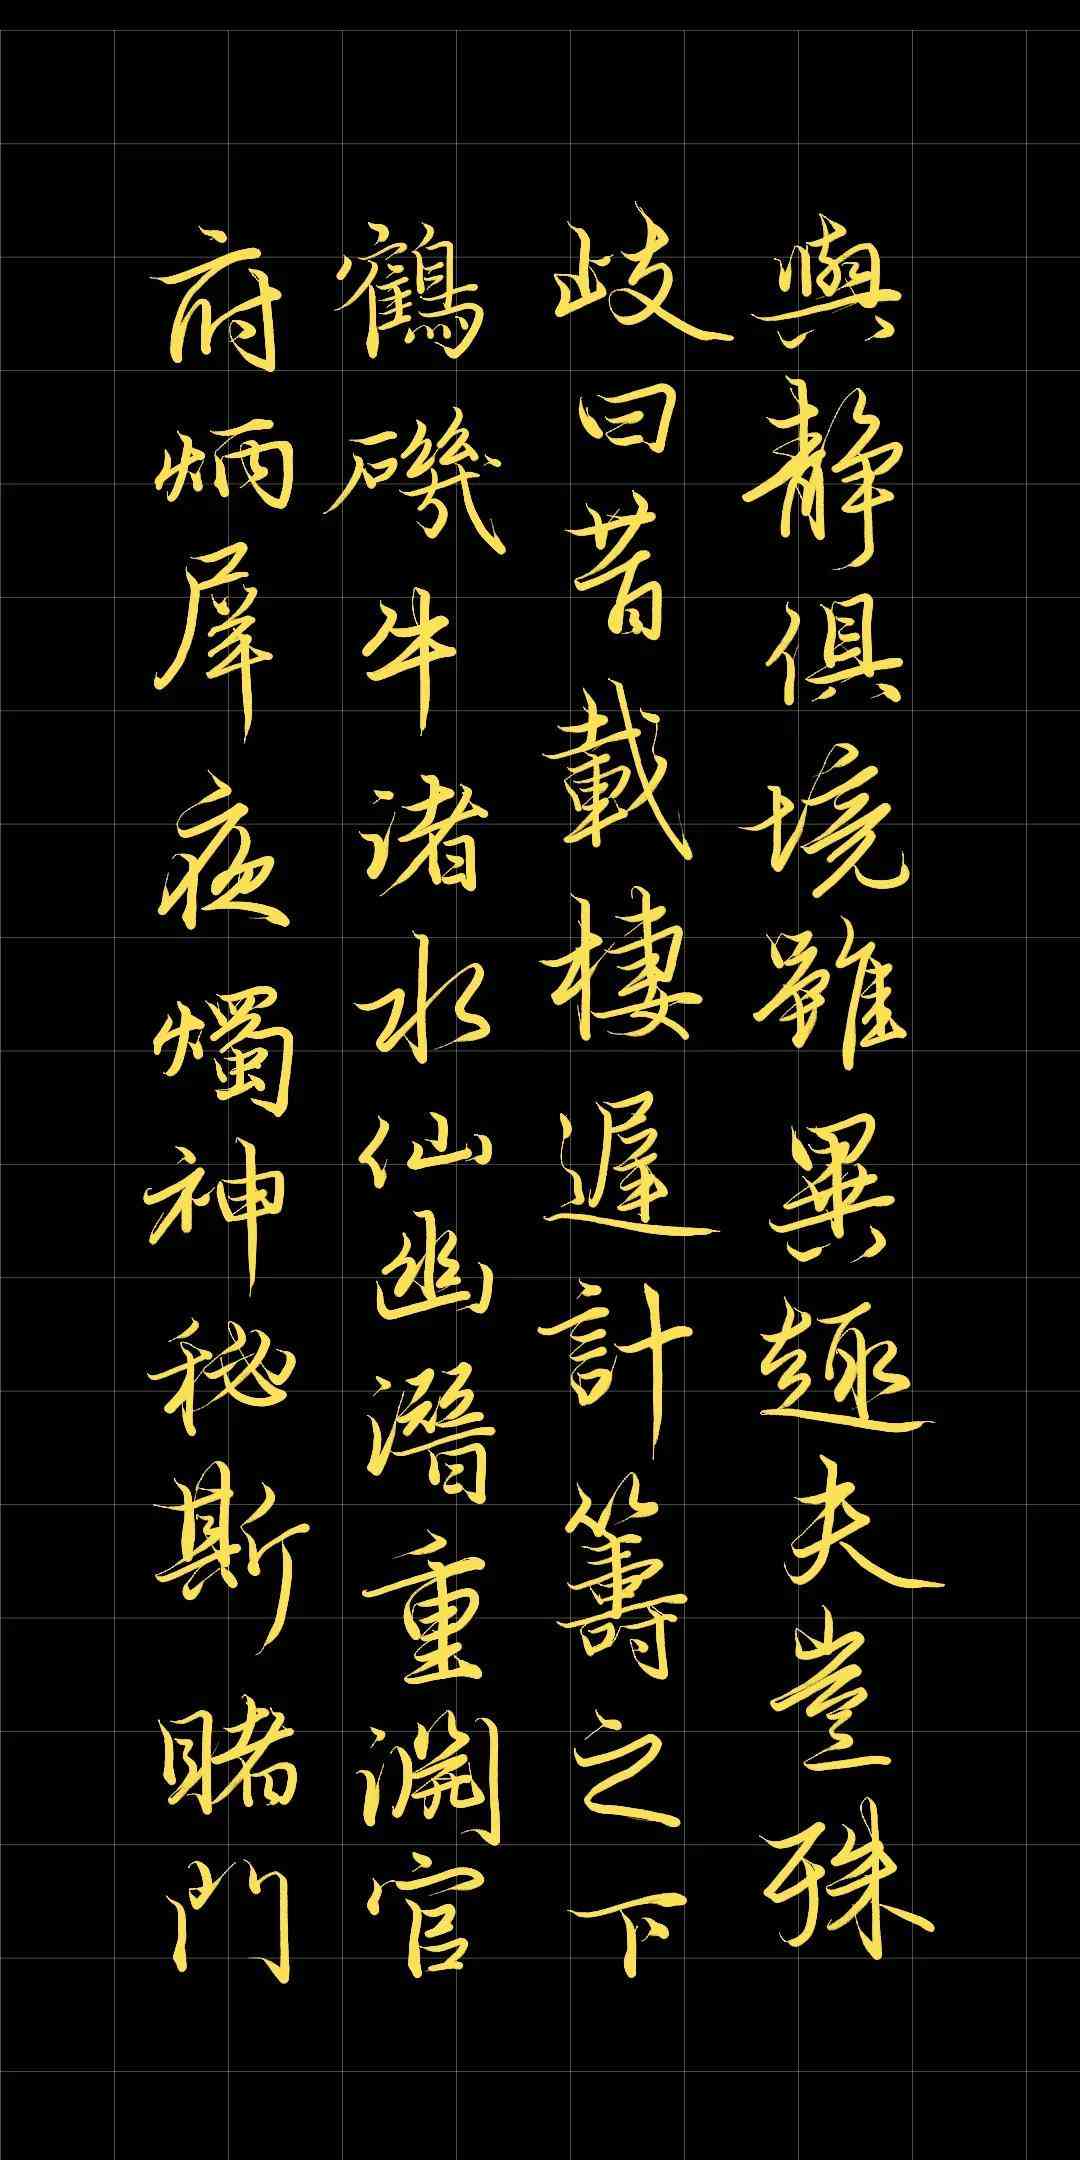 與靜俱境雖異趣夫豈殊
歧曰昔載棲遲計籌之下
鶴磯牛渚水仙幽潛重淵官
府炳犀夜燭神秘斯睹門